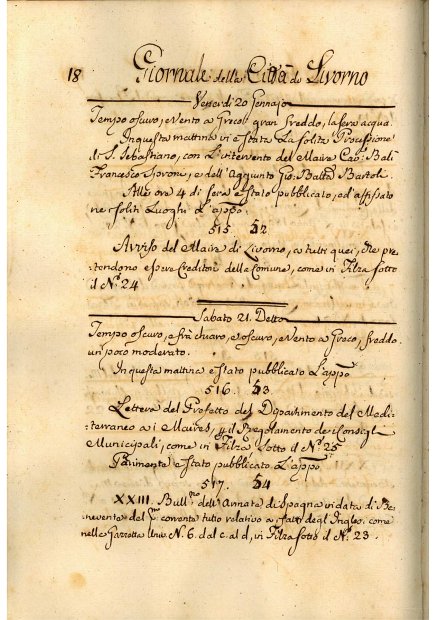 18 Giornale della Città di Livorno
Venerdi 20 Gennajo
Tempo oscuro, e Vento a Greco gran freddo, la sera acqua.
In questa mattina vi è stata La solita Processione
di S. Sebastiano, con L'intervento del Maire Cav: Bali
Francesco Sproni, e dell'Aggiunto Gio: Batta Bartol.
Alle ore 4 di sera è stato pubblicato, ed affissato
ne soliti Luoghi L'appo
515 52
Avviso del Maire di Livorno, a tutti quei, che pre=
tendono essere Creditori della Comune, come in Filza sotto
il No. 24
Sabato 21. Detto
Tempo oscuro, e frà chiaro, e oscuro, e Vento a Greco, freddo
un poco moderato.
In questa mattina è stato pubblicato L'appo
516. 53
Lettera del Prefetto del Dipartimento del Medi=
terraneo a i Maires, il Regolamento de Consigl
Municipali, come in Filza sotto il No. 25
Parimente è stato pubblicato L'appo
517. 54
XXIII. Bull.no dell'Armata di Spagna in data di Be=
nevento del corrente tutto relativo a fatti degl'Inglesi come
nelle Gazzette Univ. N. 6. dal c. al d, in Filza sotto il No. 23.